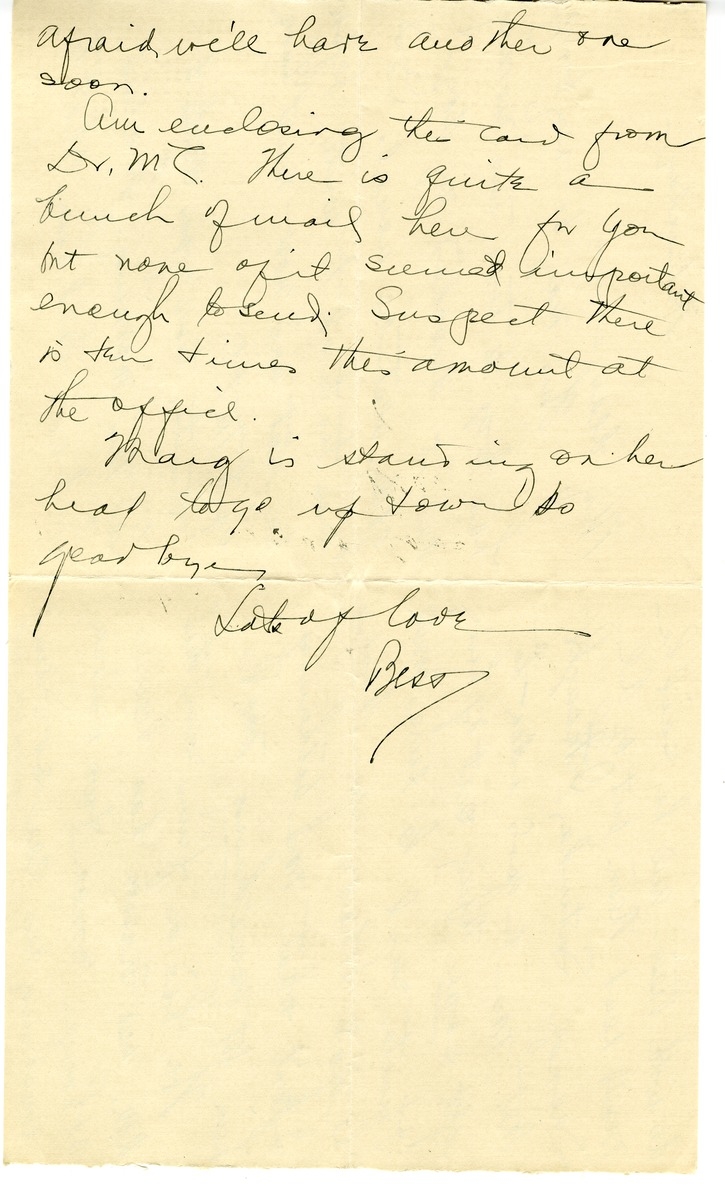 afraid we'll have another one
soon.
Am enclosing the card from
Dr. Mc. There is quite a
bunch of mail here for you
but none of it seemed important
enough to send. Suspect there
is ten times this amount at
the office.
Marg is standing on her
head to go up town so
good bye
Lots of love
Bess